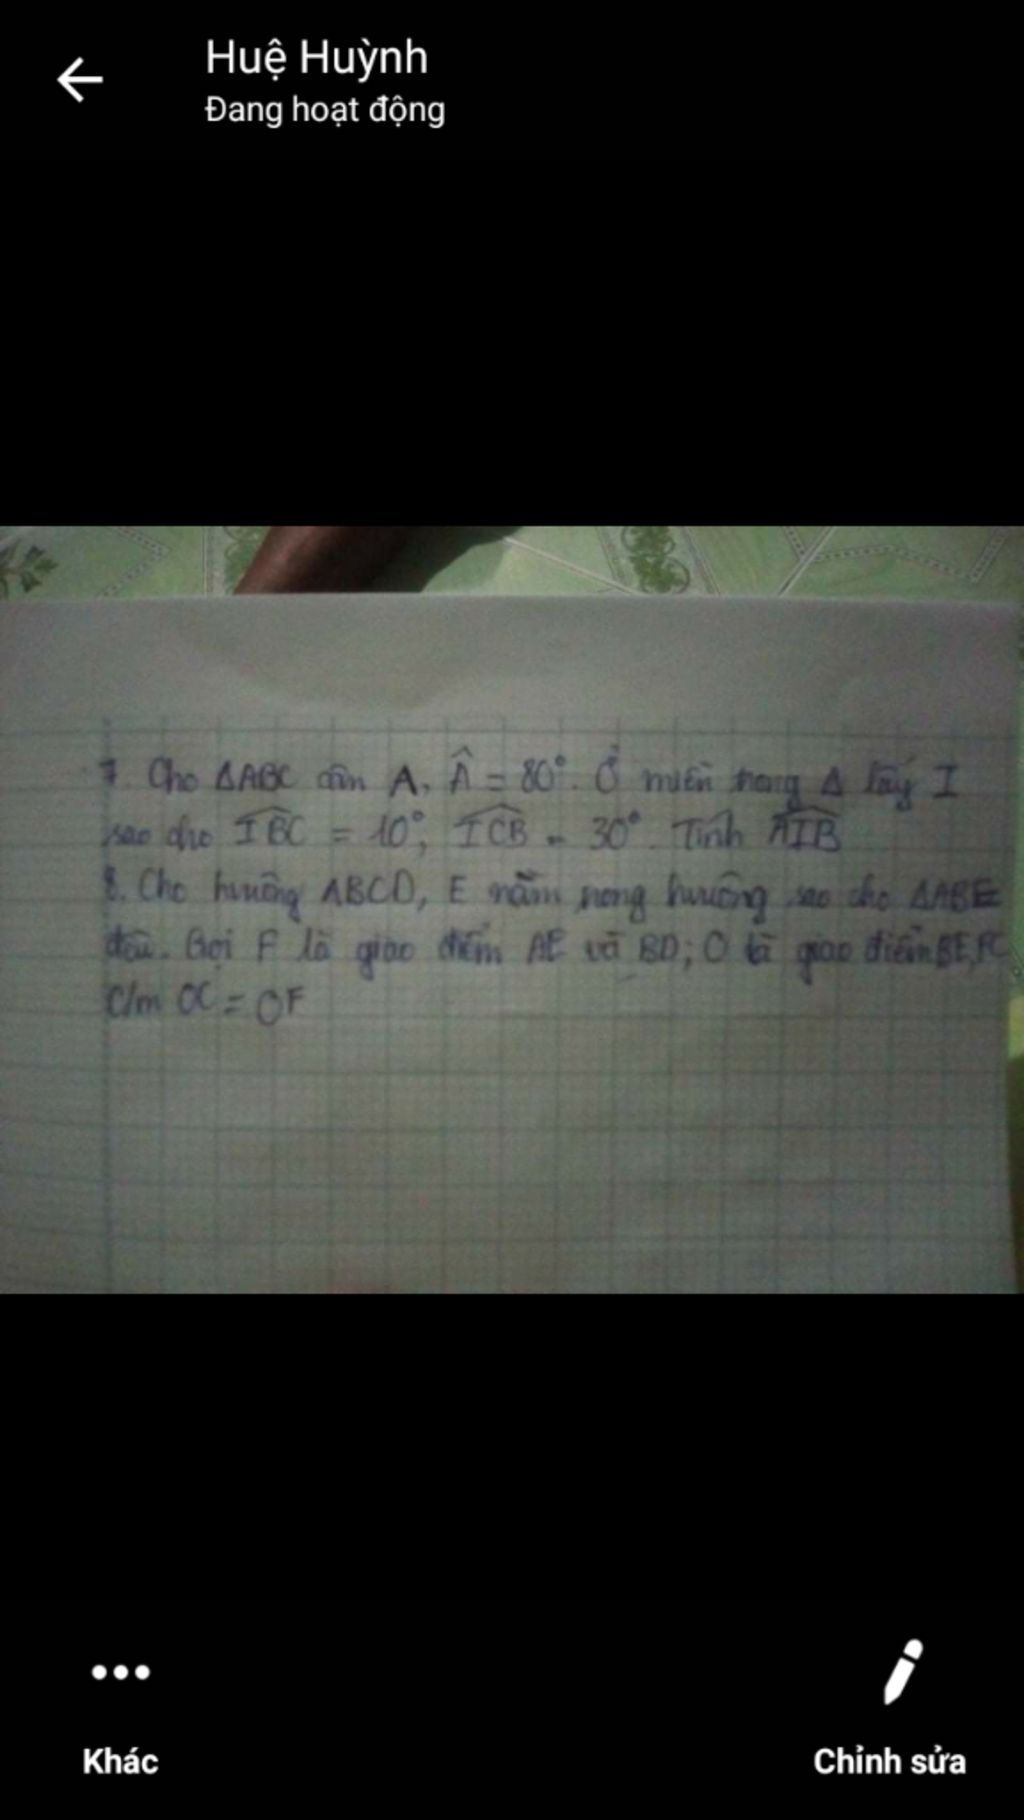 Huệ Huỳnh
Đang hoạt động
7. Cho ΔABC cân A, Â = 80°. Ở miền trong Δ lấy I
sao cho IBC = 10°, ICB = 30°. Tính AIB
8. Cho hvuông ABCD, E nằm trong hvuông sao cho ΔABE
đều. Gọi F là giao điểm AE và BD; O là giao điểm BE, FC
C/m OC = OF
Khác
Chỉnh sửa